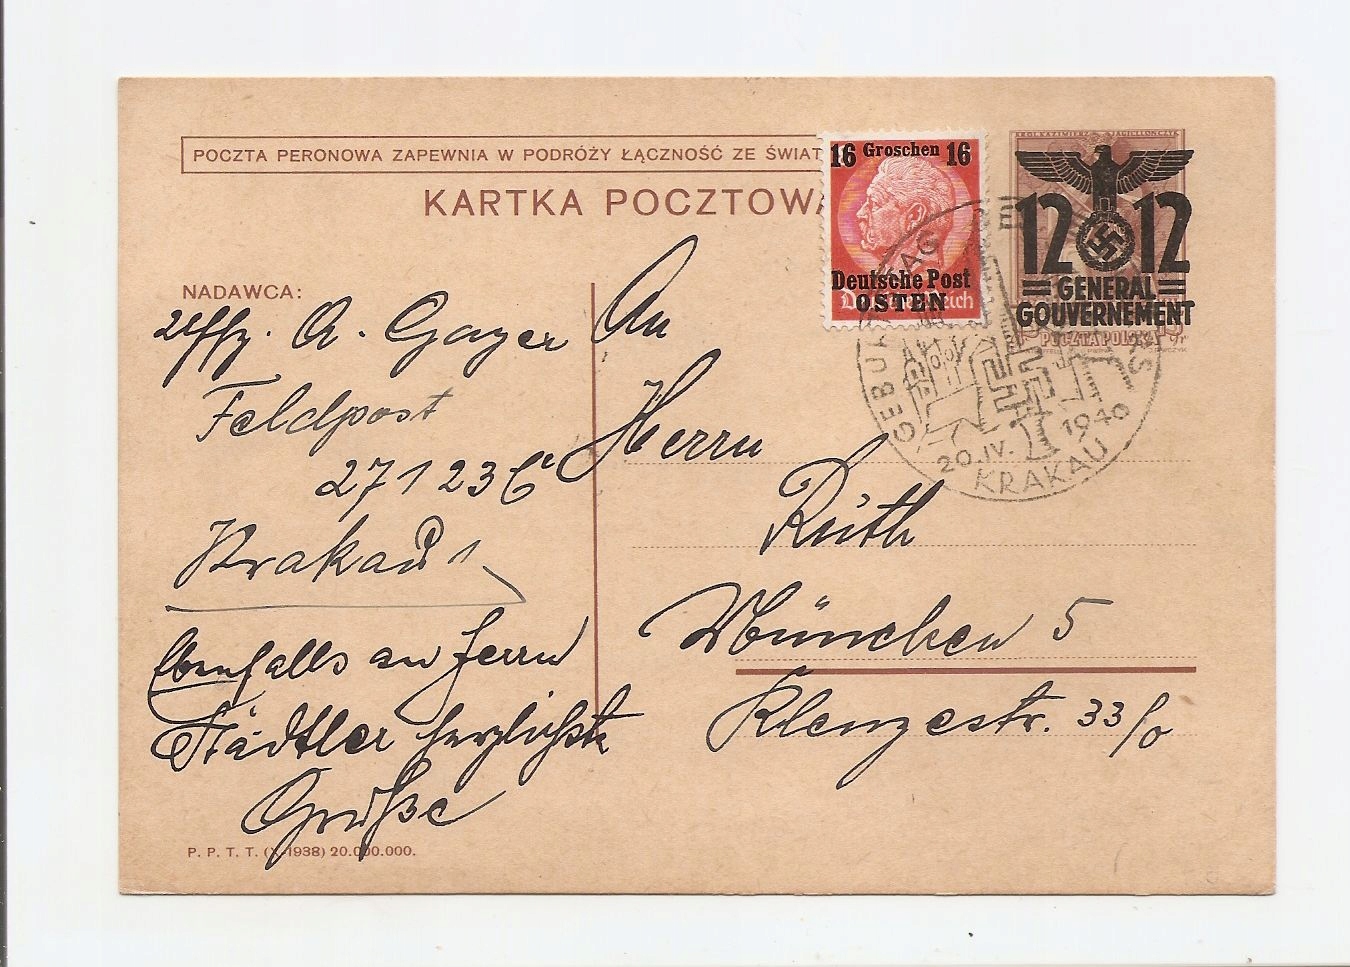 POCZTA PERONOWA ZAPEWNIA W PODRÓŻY ŁĄCZNOŚĆ ZE ŚWIAT
KARTKA POCZTOWA
16 Groschen 16
Deutsche Post
OSTEN
Deutsches Reich
KRÓL KAZIMIERZ JAGIELLOŃCZYK
12 12
GENERAL
GOUVERNEMENT
POCZTA POLSKA
GEBURTSTAG
20.IV. 1940
KRAKAU
NADAWCA:
Uffz. A. Gayer
Feldpost
27123 C
Krakau 1
Ebenfalls an Herrn
Städtler herzlichste
Grüße
P. P. T. T. (X-1938) 20.000.000.
An
Herrn
Rüth
München 5
Klenzestr. 33/0